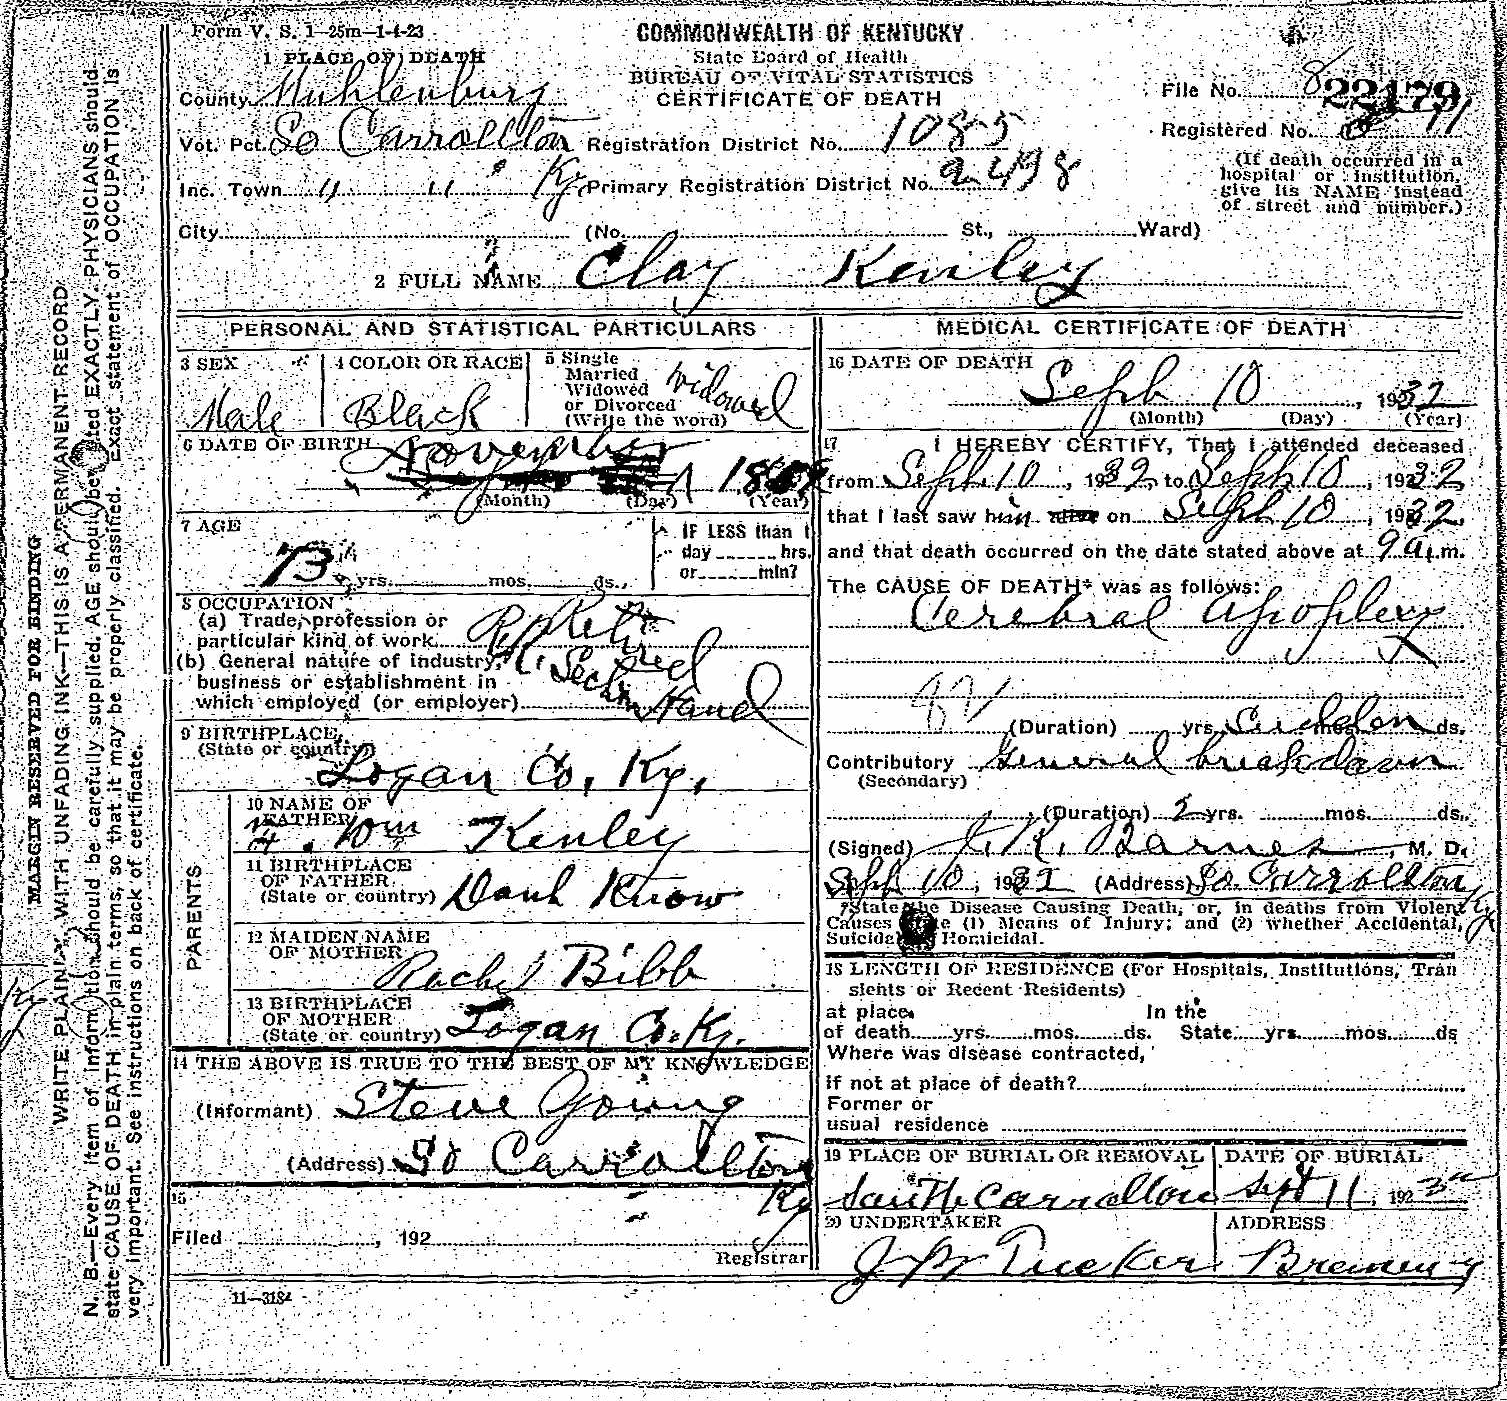 Form V. S. 1—25m—1-4-23
COMMONWEALTH OF KENTUCKY
State Board of Health
BUREAU OF VITAL STATISTICS
CERTIFICATE OF DEATH
1 PLACE OF DEATH
County Muhlenburg
Vot. Pct. So Carrollton
Inc. Town " " Ky
City (No. St., Ward)
Registration District No. 1085
Primary Registration District No. 2498
File No. 22179
Registered No. 
(If death occurred in a
hospital or institution,
give its NAME instead
of street and number.)
2 FULL NAME Clay Kenley
PERSONAL AND STATISTICAL PARTICULARS
3 SEX
Male
4 COLOR OR RACE
Black
5 Single
Married
Widowed
or Divorced
(Write the word)
Widowed
6 DATE OF BIRTH
November
(Month) (Day) (Year)
7 AGE
73 yrs. mos. ds.,
IF LESS than 1
day hrs.
or min?
8 OCCUPATION
(a) Trade, profession or
particular kind of work
(b) General nature of industry,
business or establishment in
which employed (or employer)
Retired
R.R. Section Hand
9 BIRTHPLACE,
(State or country)
Logan Co, Ky,
PARENTS
10 NAME OF
FATHER
Wm Kenley
11 BIRTHPLACE
OF FATHER
(State or country) Donh Know
12 MAIDEN NAME
OF MOTHER
Rachel Bibb
13 BIRTHPLACE
OF MOTHER
(State or country) Logan Co. Ky.
14 THE ABOVE IS TRUE TO THE BEST OF MY KNOWLEDGE
(Informant) Steve Young
(Address) So Carrollton
Ky
15
Filed , 192
Registrar
11—3184
MEDICAL CERTIFICATE OF DEATH
16 DATE OF DEATH
Sept 10, 1932
(Month) (Day) (Year)
17 I HEREBY CERTIFY, That I attended deceased
from Sept. 10, 1932, to Sept 10, 1932
that I last saw him alive on Sept 10, 1932.
and that death occurred on the date stated above at 9 a.m.
The CAUSE OF DEATH* was as follows:
Cerebral apoplexy
(Duration) yrs. Sudden mos. ds.
Contributory General breakdown
(Secondary)
(Duration) 2 yrs. mos. ds.
(Signed) J. K. Barnes, M. D.
Sept 10, 1932 (Address) So. Carrollton Ky
*State the Disease Causing Death, or, in deaths from Violent
Causes state (1) Means of Injury; and (2) whether Accidental,
Suicidal or Homicidal.
18 LENGTH OF RESIDENCE (For Hospitals, Institutions, Tran
sients or Recent Residents)
at place In the
of death yrs. mos. ds. State yrs. mos. ds
Where was disease contracted,
if not at place of death?
Former or
usual residence
19 PLACE OF BURIAL OR REMOVAL
South Carrollton
DATE OF BURIAL
Sept 11, 1932
20 UNDERTAKER
Tucker
ADDRESS
Bremen Ky
MARGIN RESERVED FOR BINDING
WRITE PLAINLY, WITH UNFADING INK—THIS IS A PERMANENT RECORD
N. B.—Every item of information should be carefully supplied. AGE should be stated EXACTLY. PHYSICIANS should
state CAUSE OF DEATH in plain terms, so that it may be properly classified. Exact statement of OCCUPATION is
very important. See instructions on back of certificate.